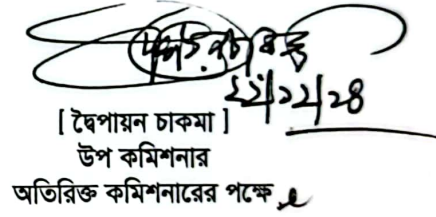 ২২/১২/২৪
[ দ্বৈপায়ন চাকমা ]
উপ কমিশনার
অতিরিক্ত কমিশনারের পক্ষে